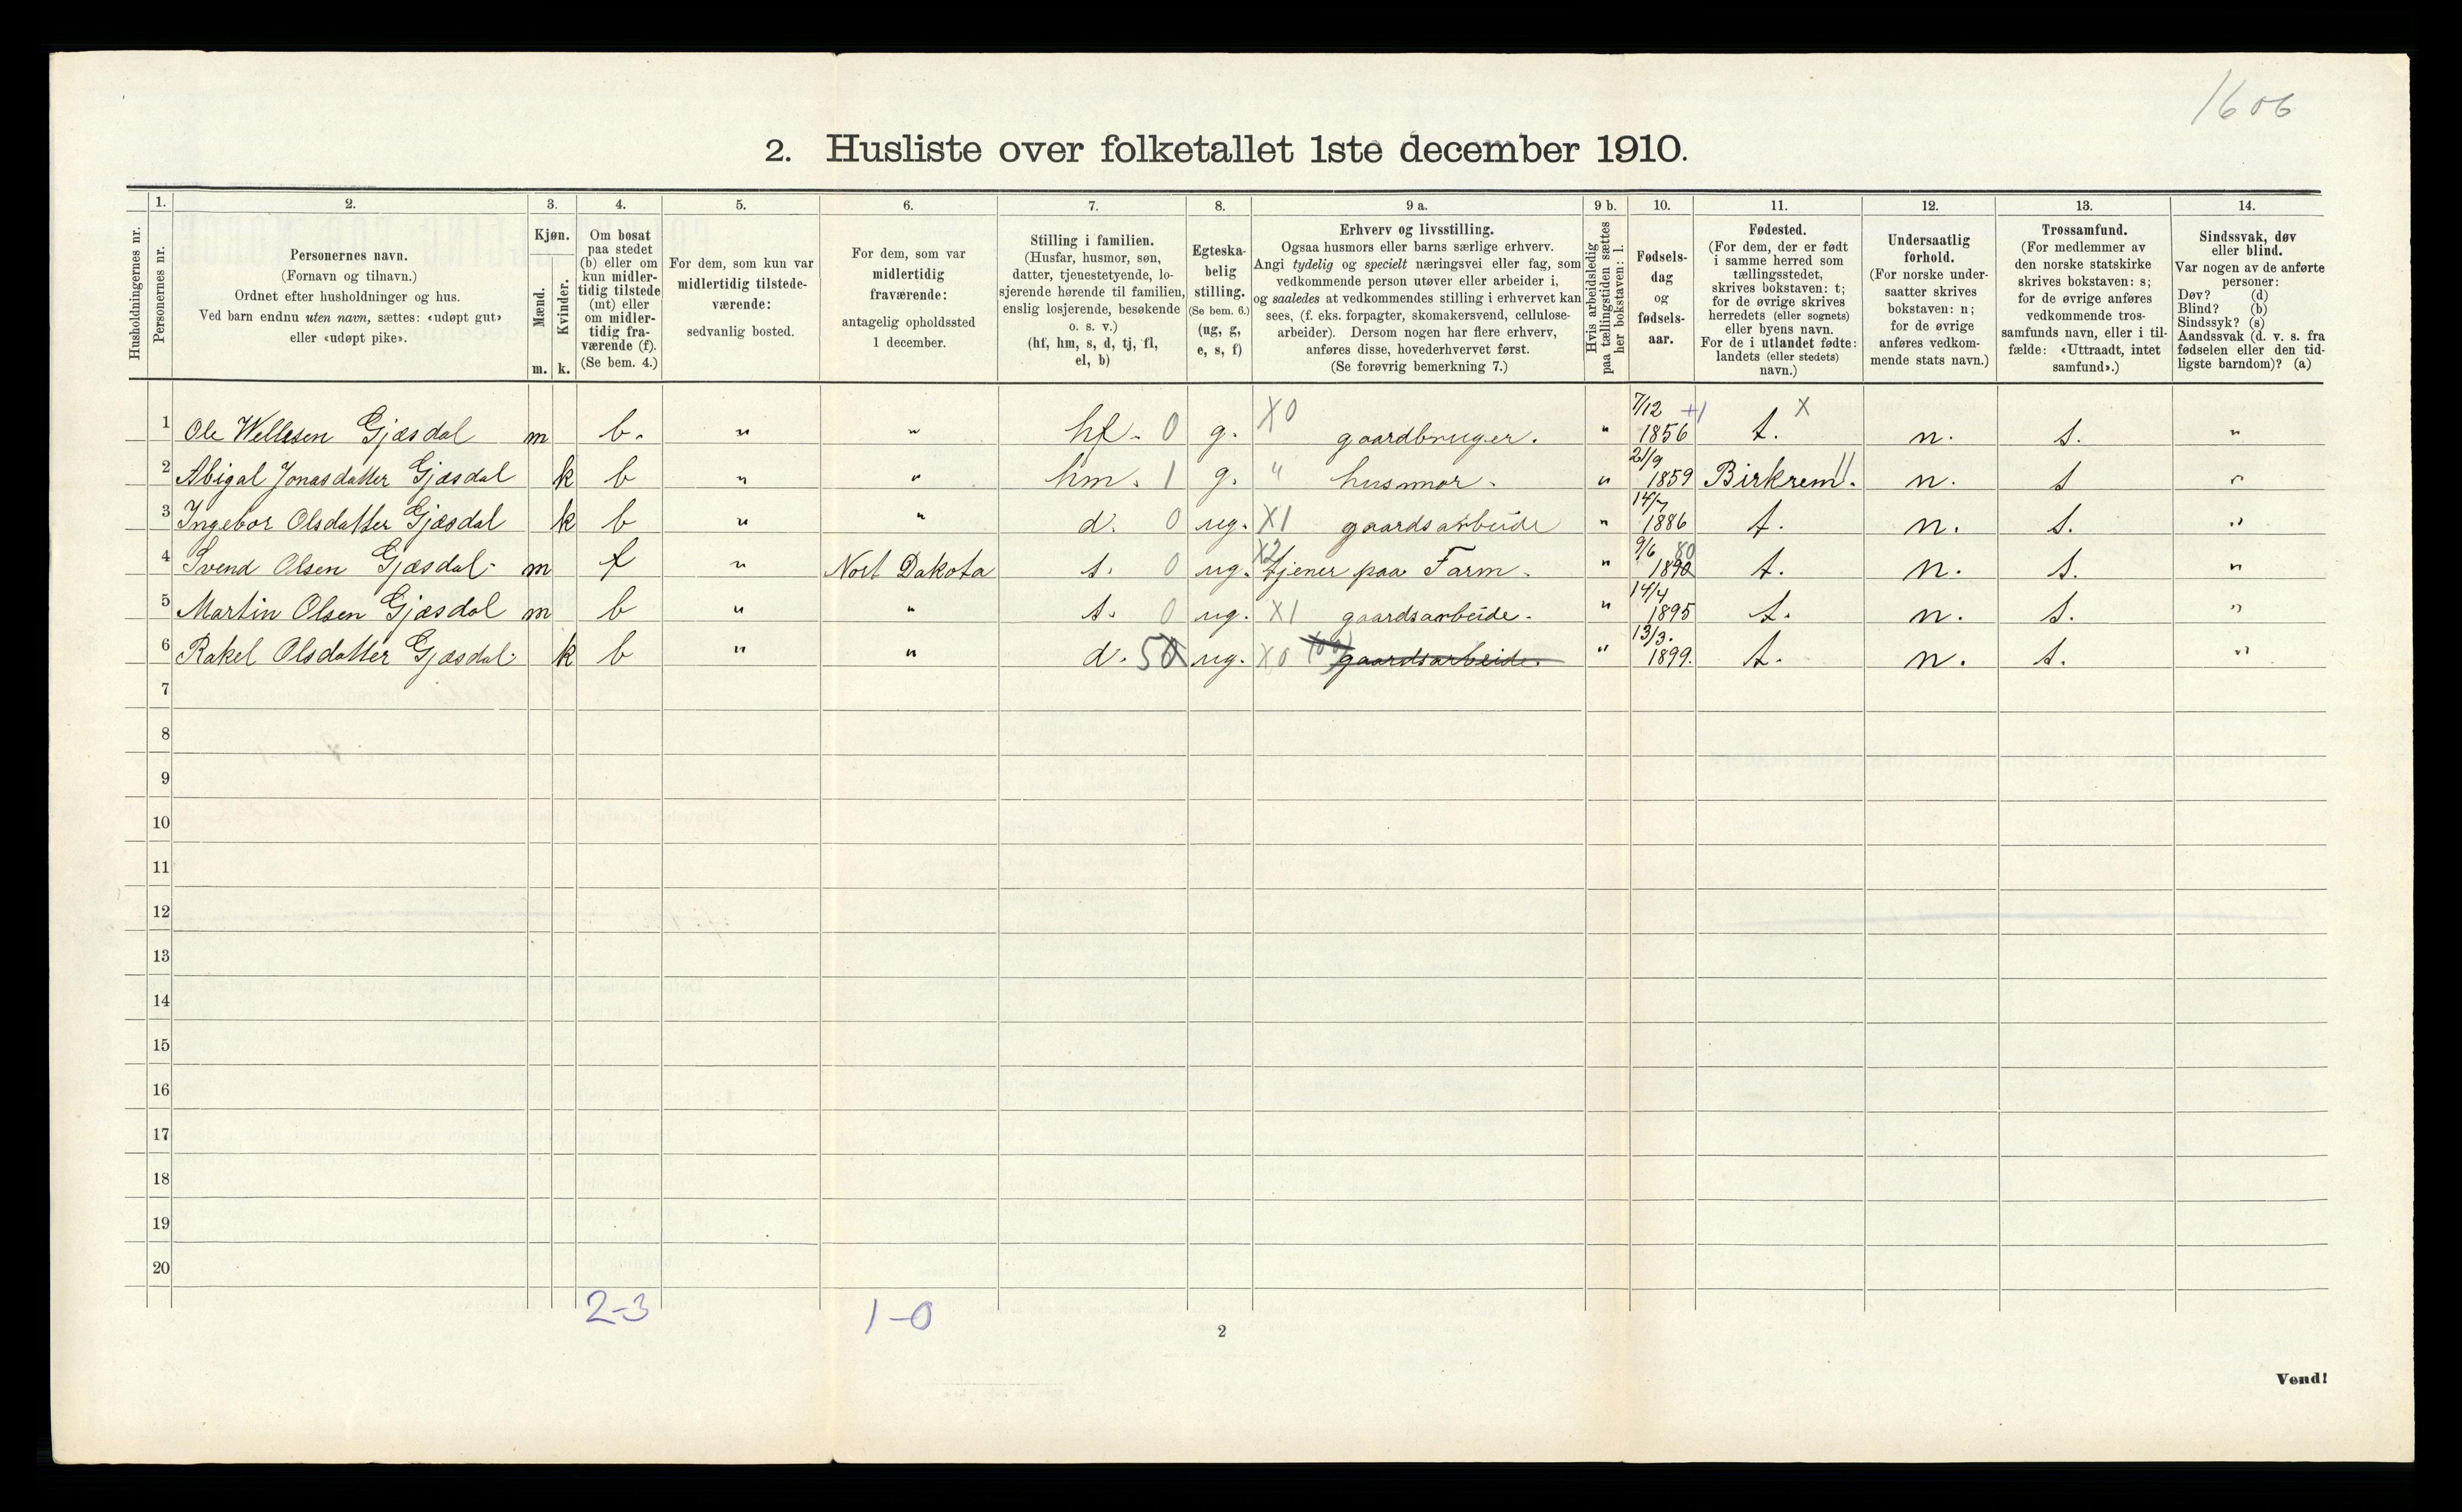 1606
2. Husliste over folketallet 1ste december 1910.
Husholdningernes nr.
1.
Personernes nr.
2.
Personernes navn.
(Fornavn og tilnavn.)
Ordnet efter husholdninger og hus.
Ved barn endnu uten navn, sættes: «udøpt gut»
eller «udøpt pike».
3.
Kjøn.
Mænd.
Kvinder.
m. k.
4.
Om bosat
paa stedet
(b) eller om
kun midler-
tidig tilstede
(mt) eller
om midler-
tidig fra-
værende (f).
(Se bem. 4.)
5.
For dem, som kun var
midlertidig tilstede-
værende:
sedvanlig bosted.
6.
For dem, som var
midlertidig
fraværende:
antagelig opholdssted
1 december.
7.
Stilling i familien.
(Husfar, husmor, søn,
datter, tjenestetyende, lo-
sjerende hørende til familien,
enslig losjerende, besøkende
o. s. v.)
(hf, hm, s, d, tj, fl,
el, b)
8.
Egteska-
belig
stilling.
(Se bem. 6.)
(ug, g,
e, s, f)
9 a.
Erhverv og livsstilling.
Ogsaa husmors eller barns særlige erhverv.
Angi tydelig og specielt næringsvei eller fag, som
vedkommende person utøver eller arbeider i,
og saaledes at vedkommendes stilling i erhvervet kan
sees, (f. eks. forpagter, skomakersvend, cellulose-
arbeider). Dersom nogen har flere erhverv,
anføres disse, hovederhvervet først.
(Se forøvrig bemerkning 7.)
9 b.
Hvis arbeidsledig
paa tællingstiden sættes
her bokstaven: l.
10.
Fødsels-
dag
og
fødsels-
aar.
11.
Fødested.
(For dem, der er født
i samme herred som
tællingsstedet,
skrives bokstaven: t;
for de øvrige skrives
herredets (eller sognets)
eller byens navn.
For de i utlandet fødte:
landets (eller stedets)
navn.)
12.
Undersaatlig
forhold.
(For norske under-
saatter skrives
bokstaven: n;
for de øvrige
anføres vedkom-
mende stats navn.)
13.
Trossamfund.
(For medlemmer av
den norske statskirke
skrives bokstaven: s;
for de øvrige anføres
vedkommende tros-
samfunds navn, eller i til-
fælde: «Uttraadt, intet
samfund».)
14.
Sindssvak, døv
eller blind.
Var nogen av de anførte
personer:
Døv? (d)
Blind? (b)
Sindssyk? (s)
Aandssvak (d. v. s. fra
fødselen eller den tid-
ligste barndom)? (a)
1 Ole Wellesen Gjæsdal m b. " " hf. 0 g. X0 gaardbruger. " 7/12 1856 +1 t. X n. s. "
2 Abigal Jonasdatter Gjæsdal k b " " hm. 1 g. " husmor. " 21/9 1859 Birkrem. || n. s "
3 Ingebor Olsdatter Gjæsdal k b " " d. 0 ug. X1 gaardsarbeide " 14/7 1886 t. n. s. "
4 Svend Olsen Gjæsdal m f " Nort Dakota s. 0 ug. X2 tjener paa Farm. " 9/6 1890 80 t. n. s. "
5 Martin Olsen Gjæsdal m b " " s. 0 ug. X1 gaardsarbeide. " 14/4 1895 t. n. s. "
6 Rakel Olsdatter Gjæsdal. k b " " d. 50 ug. X0 gaardsarbeide. " 13/3. 1899. t. n. s. "
7
8
9
10
11
12
13
14
15
16
17
18
19
20
2-3 1-0
2
Vend!